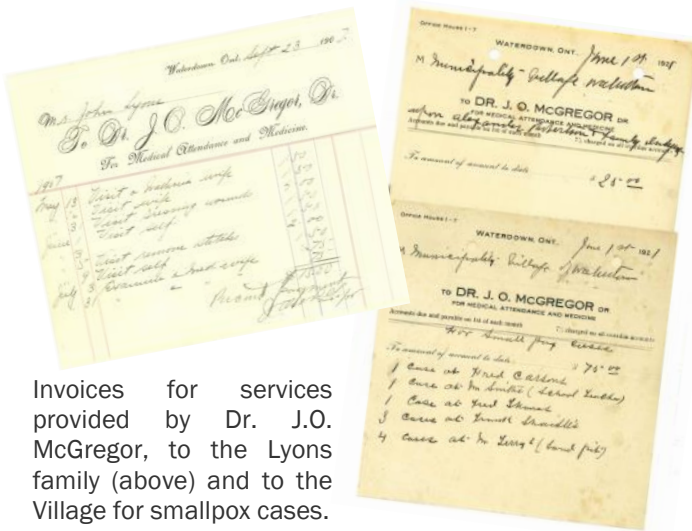 Waterdown Ont. Sept 23 190
Mr. John Lyons
To Dr. J. O. McGregor, Dr.
For Medical Attendance and Medicine.
1907
May 13 Visit & Medicine wife 50
Visit wife 50
Visit Dressing wounds
June Visit self
Visit remove stitches
Visit self
July 31 Examine & Med wife
Received payment
OFFICE HOURS 1 - 7
WATERDOWN, ONT. June 1st 1921
M Municipality Village Waterdown
TO DR. J. O. McGREGOR DR
FOR MEDICAL ATTENDANCE AND MEDICINE
Accounts due and payable on 1st of each month 7% charged on all overdue accounts
upon Alexander Robertson & family
To amount of account to date $ 25.00
OFFICE HOURS 1 - 7
WATERDOWN, ONT. June 1st 1921
M Municipality Village of Waterdown
TO DR. J. O. McGREGOR DR
FOR MEDICAL ATTENDANCE AND MEDICINE
Accounts due and payable on 1st of each month 7% charged on all overdue accounts
For Small pox cases
To amount of account to date $ 75.00
1 case at Fred Carsons
1 case at Mr Smiths (School Teacher)
1 Case at Fred
3 cases at
4 cases at Mr
Invoices for services
provided by Dr. J.O.
McGregor, to the Lyons
family (above) and to the
Village for smallpox cases.